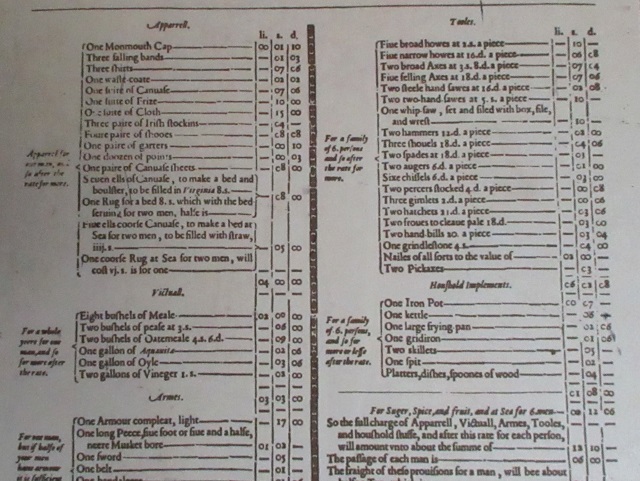 Apparrell.
li. s. d.
One Monmouth Cap 00 01 10
Three falling bands 01 03
Three shirts 07 06
One waste-coate 02 02
One suite of Canuase 07 06
One suite of Frize 10 00
One suite of Cloth 15 00
Three paire of Irish stockins 04
Foure paire of shooes 08 08
One paire of garters 00 10
One doozen of points 00 03
One paire of Canuase sheets 08 00
Seuen ells of Canuase, to make a bed and
boulster, to be filled in Virginia 8.s.
One Rug for a bed 8.s. which with the bed
seruing for two men, halfe is 08 00
Fiue ells coorse Canuase, to make a bed at
Sea for two men, to be filled with straw,
iiij.s. 05 00
One coorse Rug at Sea for two men, will
cost vj.s. is for one
04 00 00
Apparrell for
so after the
rate for more.
Victuall.
Eight bushels of Meale 02 00 00
Two bushels of pease at 3.s. 06 00
Two bushels of Oatemeale 4.s. 6.d. 09 00
One gallon of Aquauitæ 02 06
One gallon of Oyle 03 06
Two gallons of Vineger 1.s. 02 00
03 03 00
For a whole
yeere for one
man, and so
for more after
the rate.
Armes.
One Armour compleat, light 17 00
One long Peece, fiue foot or fiue and a halfe,
neere Musket bore 01 02
One sword 05
One belt 01
One bandaleere
For one man,
but if halfe of
your men
haue armour
it is sufficient
Tooles.
li. s. d.
Fiue broad howes at 2.s. a piece 10
Fiue narrow howes at 16.d. a piece 06 08
Two broad Axes at 3.s. 8.d. a piece 07 04
Fiue felling Axes at 18.d. a piece 07 06
Two steele hand sawes at 16.d. a piece 02 08
Two two-hand sawes at 5. s. a piece 10
One whip-saw, set and filed with box, file,
and wrest 10
Two hammers 12.d. a piece 02 00
Three shouels 18.d. a piece 04 06
Two spades at 18.d. a piece 03
Two augers 6.d. a piece 01 00
Sixe chissels 6.d. a piece 03 00
Two percers stocked 4.d. a piece 00 08
Three gimlets 2.d. a piece 00 06
Two hatchets 21.d. a piece 03 06
Two froues to cleaue pale 18.d. 03 00
Two hand-bills 20. a piece 03 04
One grindlestone 4.s. 04 00
Nailes of all sorts to the value of 02 00
Two Pickaxes 03
06 02 08
For a family
of 6. persons
and so after
the rate for
more.
Houshold Implements.
One Iron Pot 00 07
One kettle 06
One large frying pan 02 06
One gridiron 01 06
Two skillets 05
One spit 02
Platters, dishes, spoones of wood 04
01 08 00
For a family
of 6. persons,
and so for
more or lesse
after the rate.
For Suger, Spice, and fruit, and at Sea for 6.men 00 12 06
So the full charge of Apparrell, Victuall, Armes, Tooles,
and houshold stuffe, and after this rate for each person,
will amount vnto about the summe of 12 10
The passage of each man is 06 00
The fraight of these prouisions for a man, will bee about